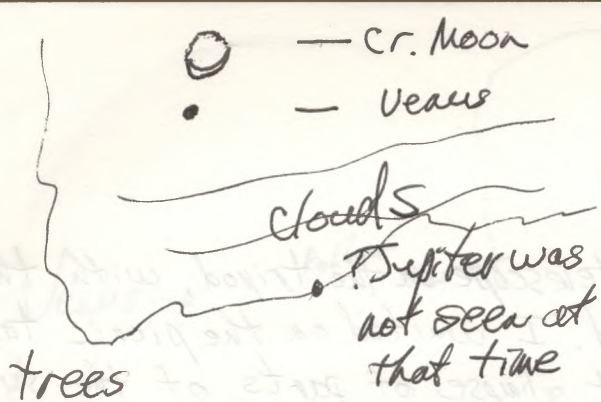 — Cr. Moon
— Venus
clouds
? Jupiter was
not seen at
that time
trees